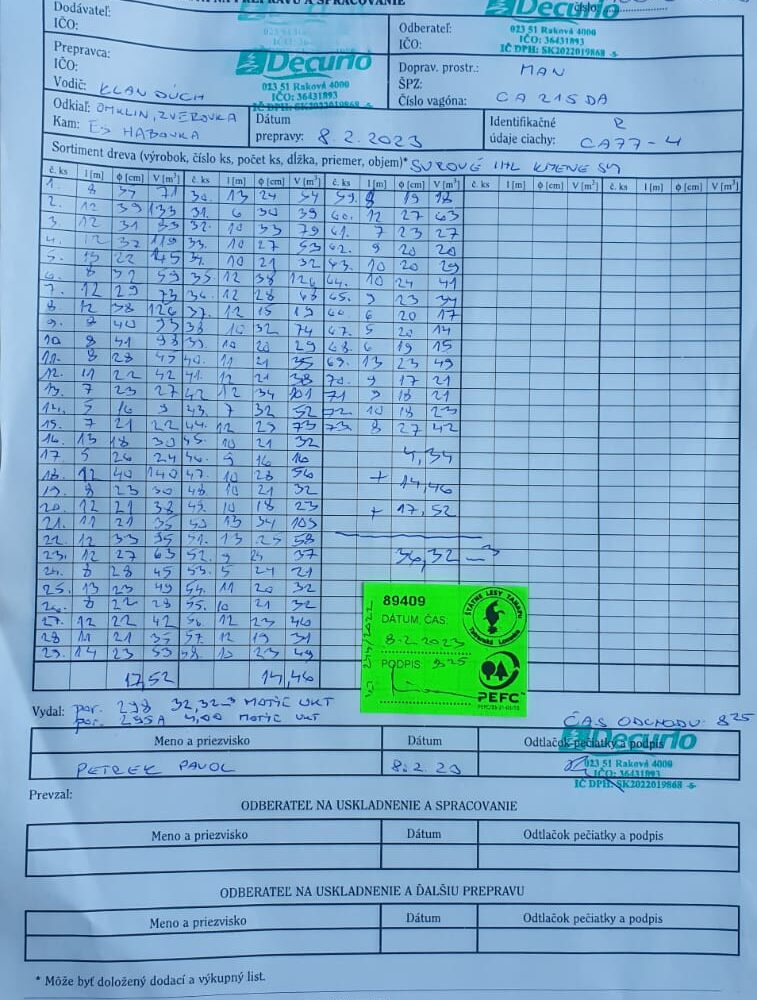 NA PREPRAVU A SPRACOVANIE
Dodávateľ:
IČO:
Decurio
023 51 Raková 4000
IČO: 36431893
IČ DPH: SK2022019868 -5-
číslo:
Odberateľ:
IČO:
Prepravca:
IČO:
Vodič:
Decurio
023 51 Raková 4000
IČO: 36431893
IČ DPH: SK2022019868 -5-
Doprav. prostr.: MAN
ŠPZ:
Číslo vagóna: CA 215 DA
Odkiaľ: ZVEROVKA
Kam: ES HABOVKA
Dátum
prepravy: 8.2.2023
Identifikačné
údaje ciachy: CA77-4
Sortiment dreva (výrobok, číslo ks, počet ks, dĺžka, priemer, objem)* SUROVÉ IHL KMENE SM
č. ks l [m] φ [cm] V [m³] č. ks l [m] φ [cm] V [m³] č. ks l [m] φ [cm] V [m³] č. ks l [m] φ [cm] V [m³] č. ks l [m] φ [cm] V [m³]
1. 8 34 71 30. 13 24 54 59. 8 19 18
2. 12 39 133 31. 6 30 39 60. 12 27 63
3. 12 31 83 32. 10 33 79 61. 7 23 27
4. 12 37 119 33. 10 27 53 62. 9 20 20
5. 22 45 34. 10 21 32 63. 10 20 29
6. 8 59 35 12 38 126 64. 10 24 41
7. 12 29 73 36. 12 28 68 65. 9 23 34
8. 12 38 126 37. 12 15 19 66. 6 20 17
9. 8 40 93 38 10 32 74 67. 5 20 14
10 8 41 98 39. 10 20 29 68. 6 19 15
11. 8 28 45 40. 11 21 35 69. 13 23 49
12. 11 22 42 41. 12 21 38 70. 9 17 21
13. 7 23 27 42 12 34 101 71 9 18 21
14. 5 16 9 43. 7 32 52 72. 10 18 23
15. 7 21 22 44. 12 29 73 73. 8 27 42
16. 13 18 30 45. 10 21 32
17 5 26 24 46. 9 16 16 4,34
18. 12 40 140 47. 10 28 56 + 14,46
19. 8 23 30 48 10 21 32
20. 12 21 38 49. 10 18 23 + 17,52
21. 11 21 35 50 13 34 109
22. 12 33 95 51. 13 25 58
23. 12 27 63 52. 9 37 36,32 m3
24. 8 28 45 53. 5 24 21
25. 13 23 49 54. 11 20 32
26. 8 22 28 55. 10 21 32
27. 12 22 42 56. 12 23 46
28 11 21 35 57. 12 19 31
29. 14 23 53 58. 10 23 49
17,52 14,46
89409
DÁTUM, ČAS:
8.2.2023
PODPIS 8 25
ŠTÁTNE LESY TANAPU
PEFC™
Vydal: por. 298 32,32m3 MOTIC UKT
por. 295A 4,00 MOTIC UKT
ČAS ODCHODU: 8 25
Meno a priezvisko Dátum Odtlačok pečiatky a podpis
PETREK PAVOL 8.2.23
Decurio
023 51 Raková 4000
IČO: 36431893
IČ DPH: SK2022019868 -5-
Prevzal:
ODBERATEĽ NA USKLADNENIE A SPRACOVANIE
Meno a priezvisko Dátum Odtlačok pečiatky a podpis
ODBERATEĽ NA USKLADNENIE A ĎALŠIU PREPRAVU
Meno a priezvisko Dátum Odtlačok pečiatky a podpis
* Môže byť doložený dodací a výkupný list.